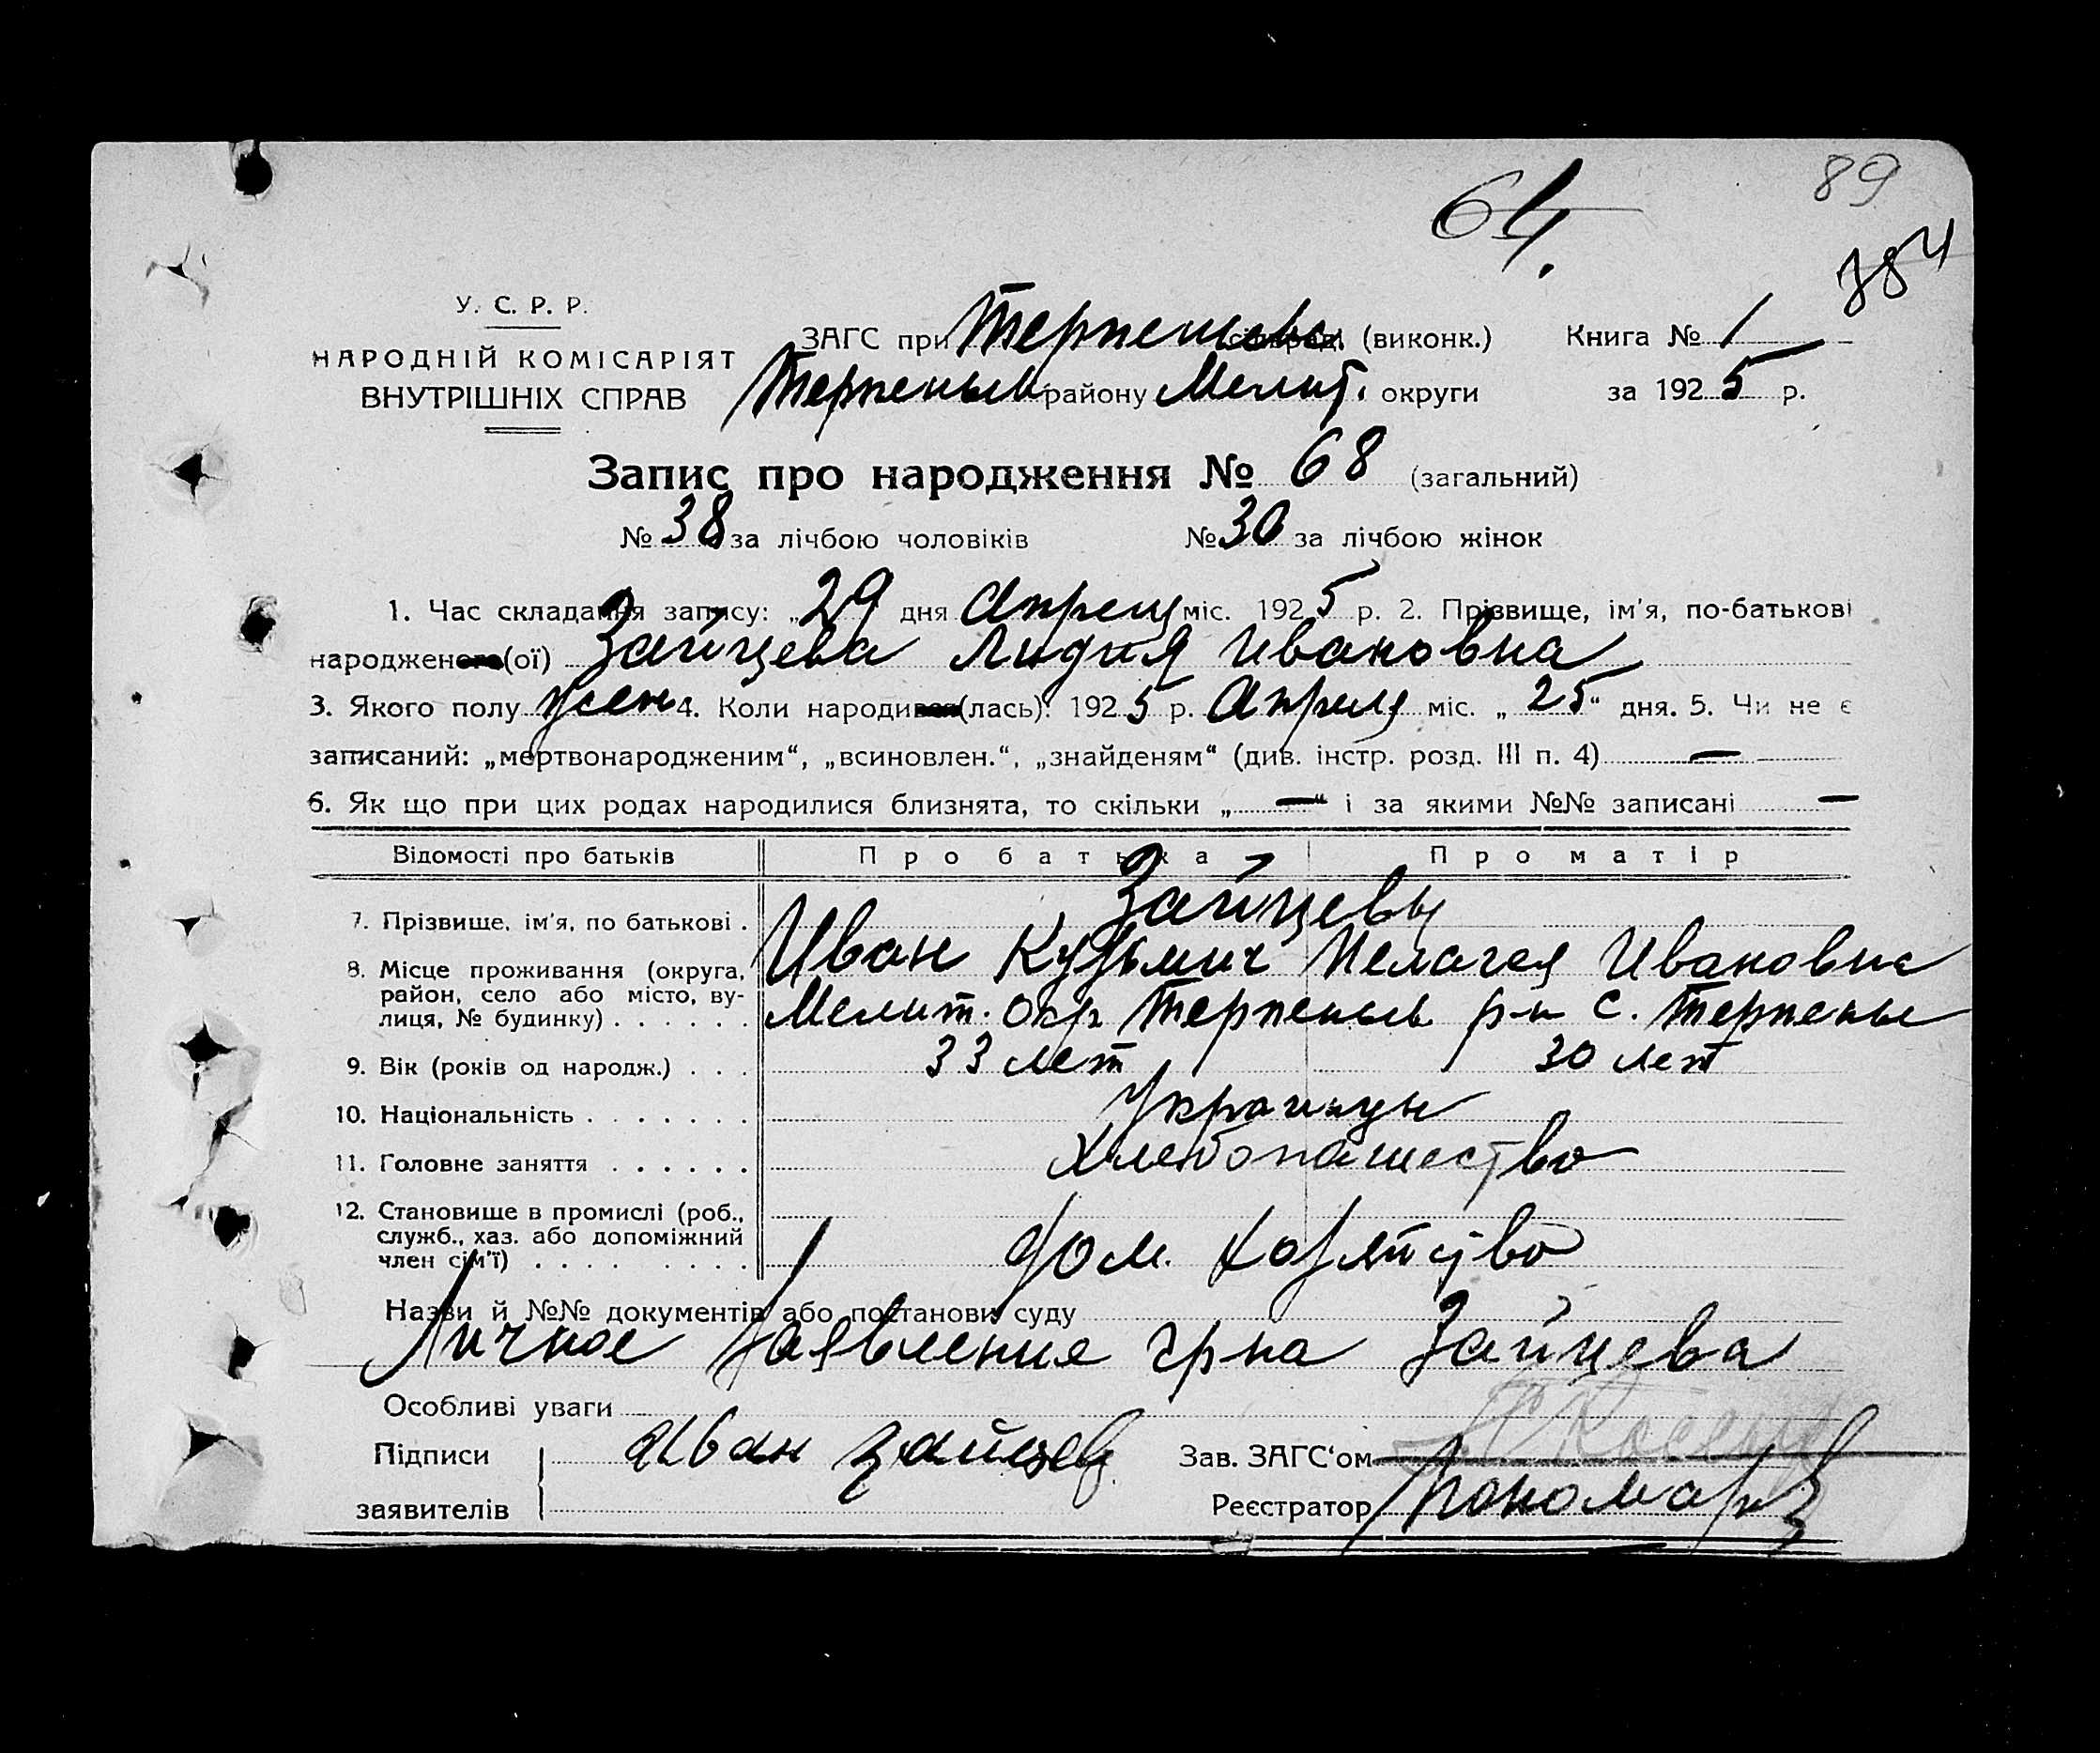 89
64.
384
У. С. Р. Р.
НАРОДНІЙ КОМІСАРІЯТ
ВНУТРІШНІХ СПРАВ
ЗАГС при Терпеньев. (виконк.) Книга № 1
Терпеньев району Мелит. округи за 1925 р.
Запис про народження № 68 (загальний)
№ 38 за лічбою чоловіків № 30 за лічбою жінок
1. Час складання запису: „29 дня Апреля міс. 1925 р. 2. Прізвище, ім'я, по-батькові
народженого(ої) Зайцева Лидия Ивановна
3. Якого полу жен 4. Коли народився(лась): 1925 р. Апреля міс. „25“ дня. 5. Чи не є
записаний: „мертвонародженим“, „всиновлен.“, „знайденям“ (див. інстр. розд. III п. 4) —
6. Як що при цих родах народилися близнята, то скільки „—“ і за якими №№ записані —
Відомості про батьків Про батька Про матір
7. Прізвище, ім'я, по батькові . Зайцевы
Иван Кузьмич Пелагея Ивановна
8. Місце проживання (округа, район, село або місто, ву-
лиця, № будинку) . . . . . . Мелит. окр Терпеньев р-н с. Терпенье
9. Вік (років од народж.) . . . 33 лет 30 лет
10. Національність . . . . . . . Украинцы
11. Головне заняття . . . . . . Хлебопашество
12. Становище в промислі (роб.,
служб., хаз. або допоміжний
член сім'ї) . . . . . . . . Дом. хозяйство
Назви й №№ документів або постанови суду
Личное заявление гр-на Зайцева
Особливі уваги
Підписи Иван Зайцев Зав. ЗАГС'ом
заявителів Реєстратор